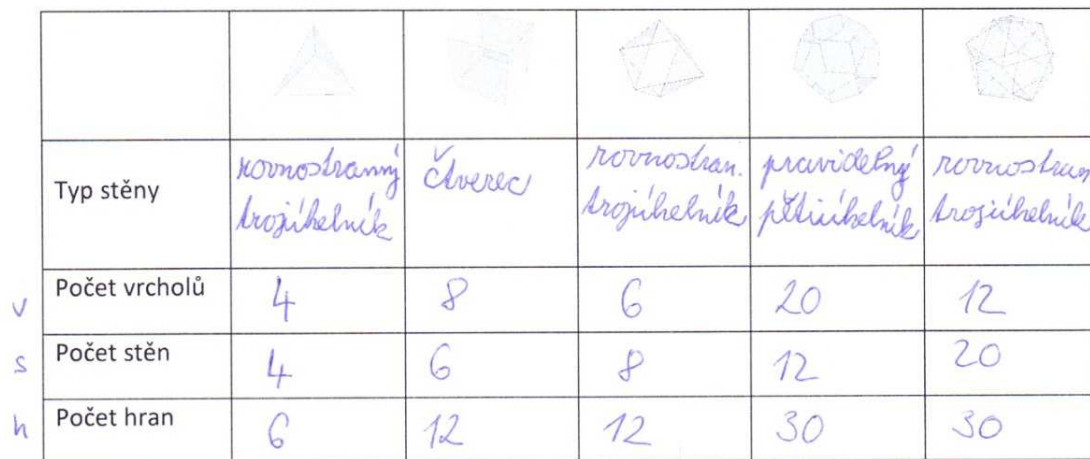 Typ stěny
rovnostranný
trojúhelník
čtverec
rovnostran.
trojúhelník
pravidelný
pětiúhelník
rovnostran
trojúhelník
v Počet vrcholů 4 8 6 20 12
s Počet stěn 4 6 8 12 20
h Počet hran 6 12 12 30 30